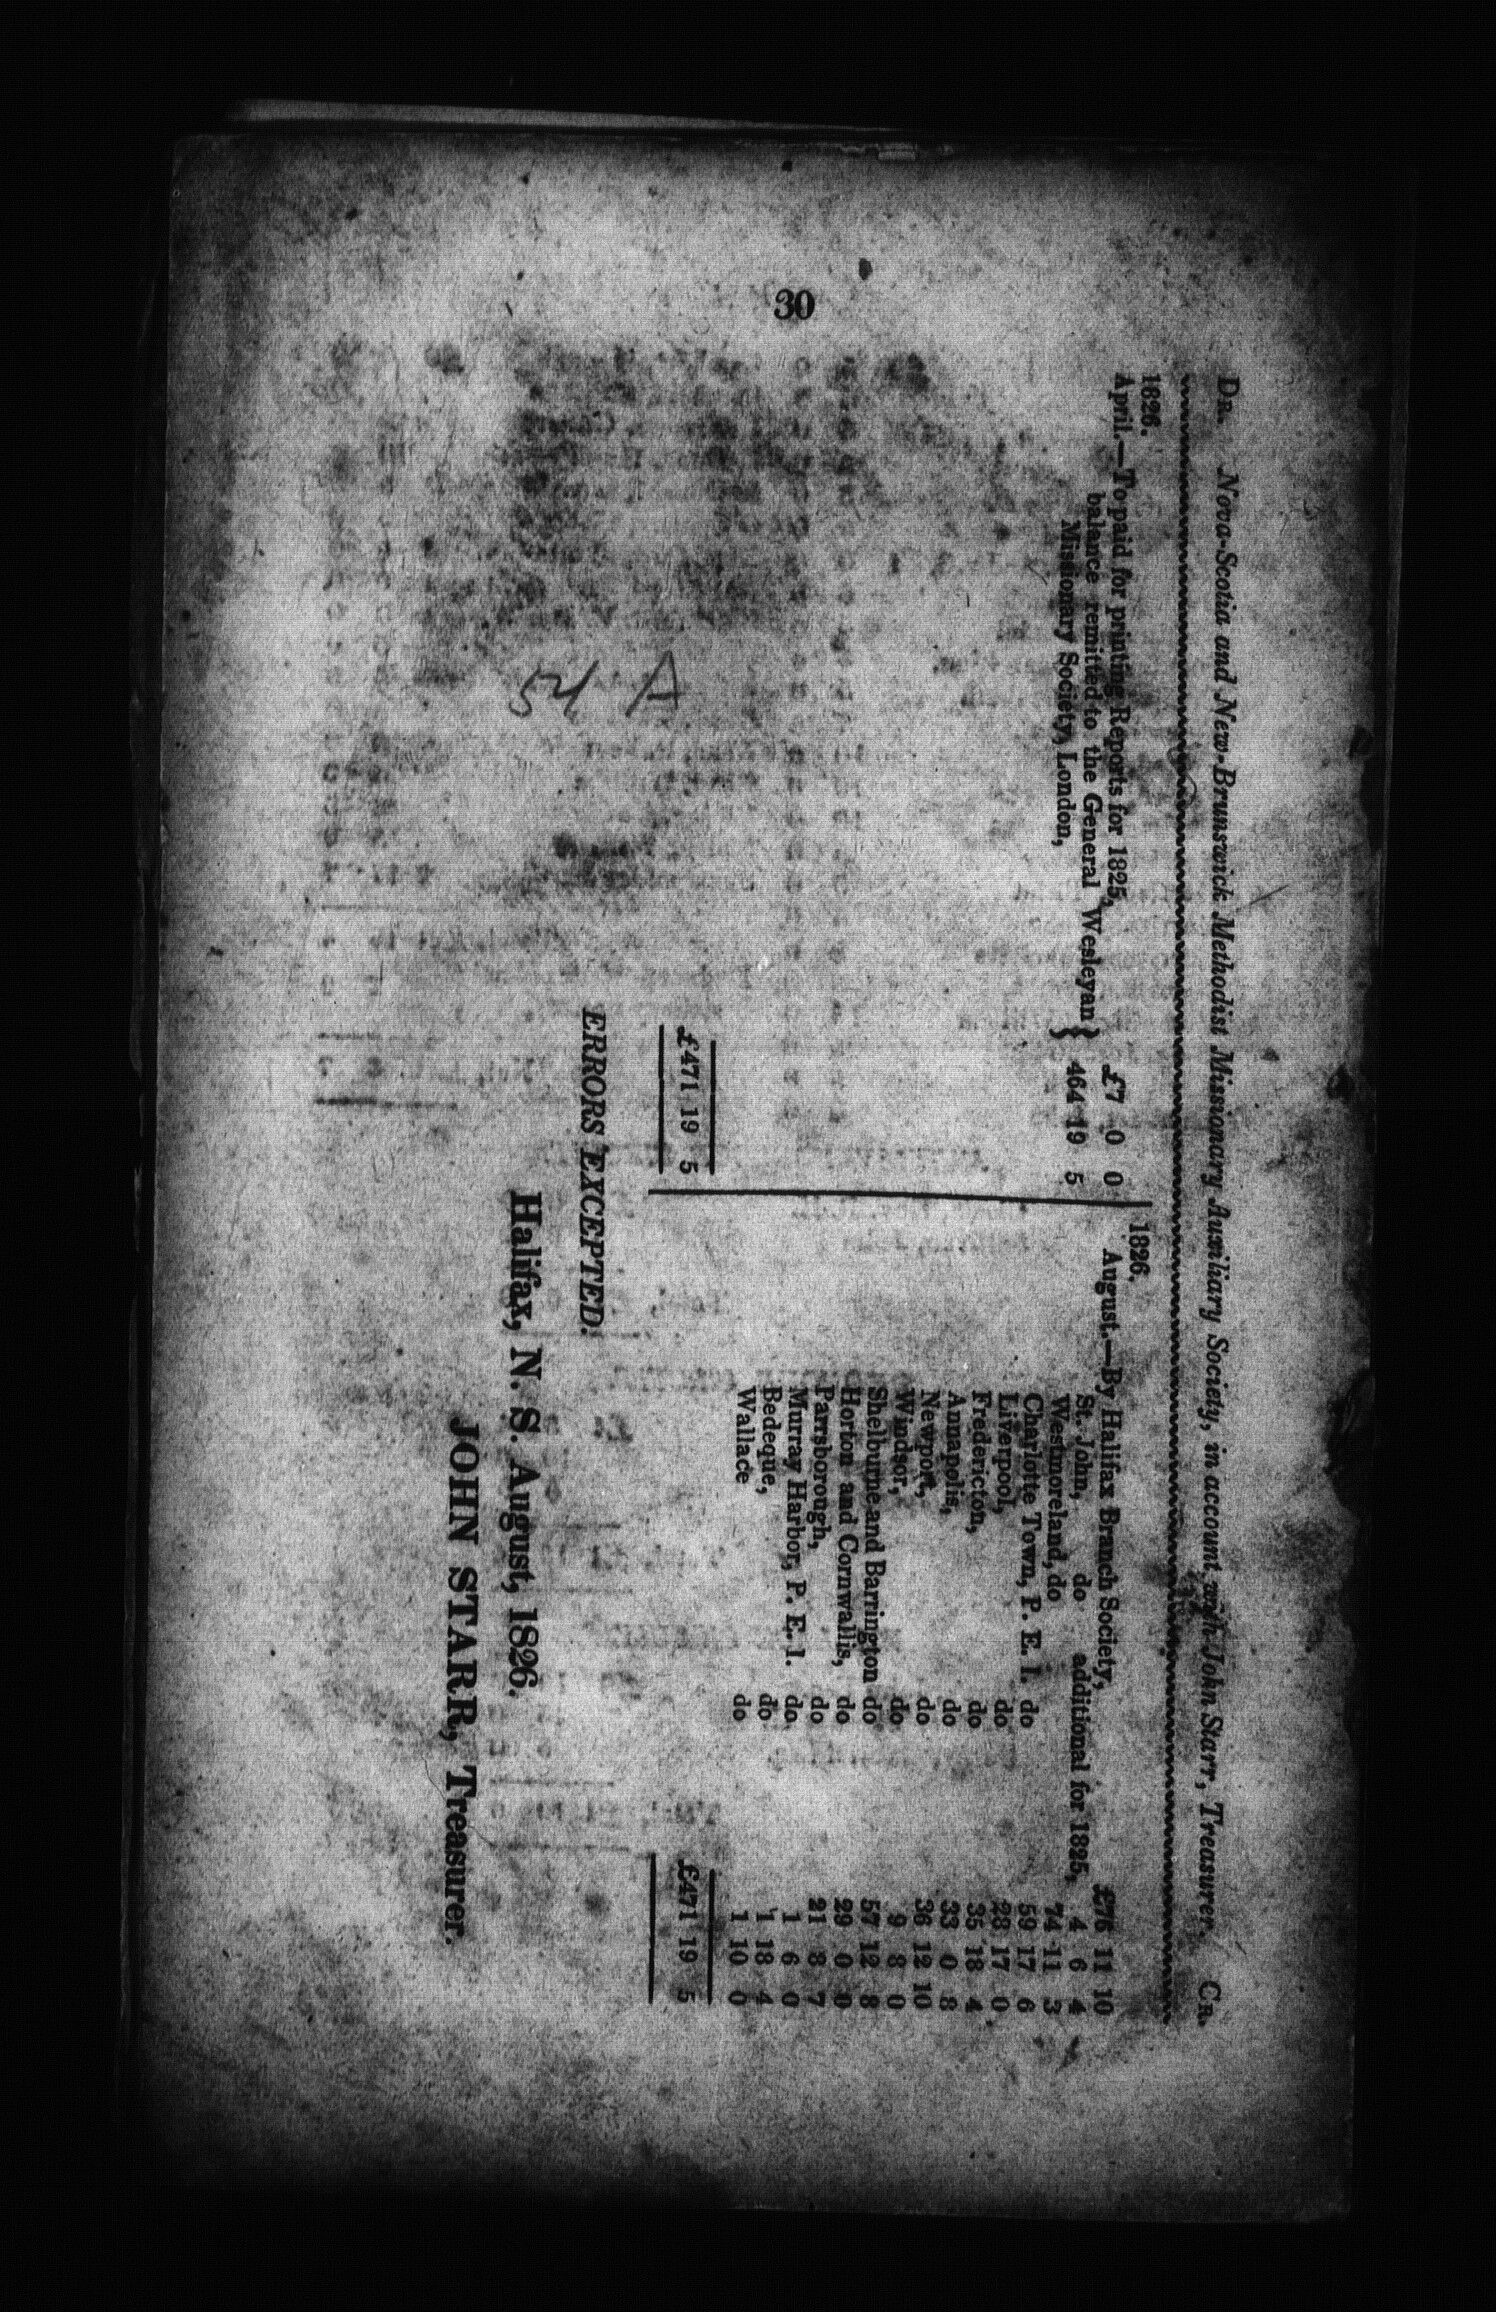 30
DR. Nova-Scotia and New-Brunswick Methodist Missionary Auxiliary Society, in account with John Starr, Treasurer. CR.
1826.
April.—To paid for printing Reports for 1825, £7 0 0
balance remitted to the General Wesleyan } 464 19 5
Missionary Society, London,
£471 19 5
1826.
August.—By Halifax Branch Society, £76 11 10
St. John, do additional for 1825, 4 6 4
Westmoreland, do 74 11 3
Charlotte Town, P. E. I. do 59 17 6
Liverpool, do 28 17 0
Fredericton, do 35 18 4
Annapolis, do 33 0 8
Newport, do 36 12 10
Windsor, do 9 8 0
Shelburne and Barrington do 57 12 8
Horton and Cornwallis, do 29 0 0
Parrsborough, do 21 8 7
Murray Harbor, P. E. I. do 1 6 0
Bedeque, do 1 18 4
Wallace do 1 10 0
£471 19 5
ERRORS EXCEPTED:
Halifax, N. S. August, 1826.
JOHN STARR, Treasurer.